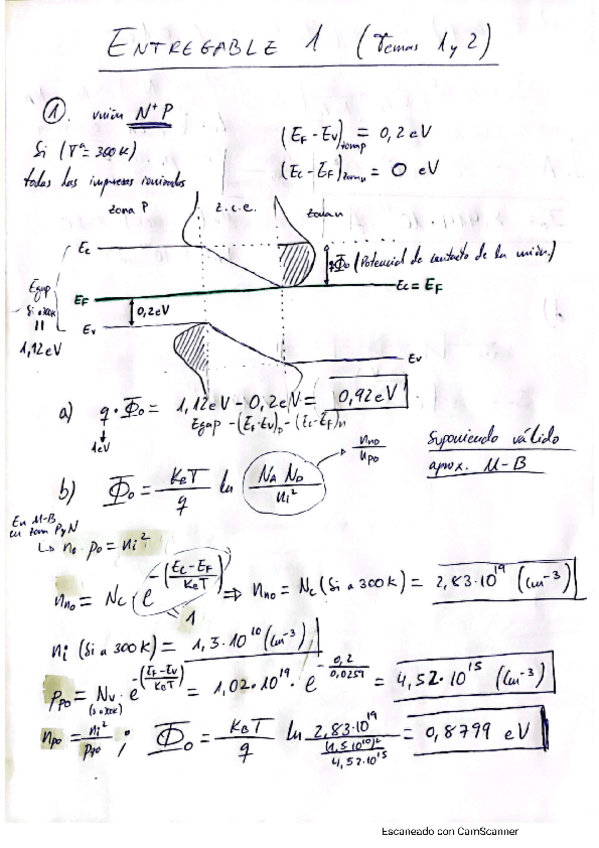 ENTREGABLE 1 (Temas 1 y 2)
① . unión N⁺P
Si (Tª = 300 K)
todas las impurezas ionizadas
(E_F - E_V)_zona p = 0,2 eV
(E_C - E_F)_zona n = 0 eV
zona P z.c.e. zona n
E_C
qΦ₀ (Potencial de contacto de la unión.)
E_C = E_F
Egap
Si a 300K
=
1,12 eV
E_F
0,2 eV
E_V
E_V
a) q·Φ₀ = 1,12 eV - 0,2 eV = 0,92 eV
1eV
Egap - (E_F-E_V)_p - (E_C-E_F)_n
b) Φ₀ = K_BT/q ln N_A N_D/n_i²
n_n0/n_p0
Suponiendo válido
aprox. M-B
En M-B
en zona P y N
↳ n₀ p₀ = n_i²
n_n0 = N_C e^-((E_C-E_F)/K_BT) ⇒ n_n0 = N_C (Si a 300K) = 2,83·10¹⁹ (cm⁻³)
1
n_i (Si a 300K) = 1,3·10¹⁰ (cm⁻³)
p_p0 = N_V · e^-((E_F-E_V)/K_BT) = 1,02·10¹⁹ · e^-(0,2/0,0259) = 4,52·10¹⁵ (cm⁻³)
(Si a 300K)
n_p0 = n_i²/p_p0 ; Φ₀ = K_BT/q ln 2,83·10¹⁹/((1,5·10¹⁰)²/4,52·10¹⁵) = 0,8799 eV
Escaneado con CamScanner